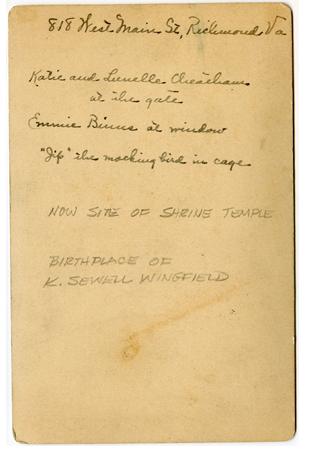 818 West Main St, Richmond Va
Katie and Lunelle Cheatham
at the gate
Emmie Binns at window
"Jip" the mocking bird in cage
NOW SITE OF SHRINE TEMPLE
BIRTHPLACE OF
K. SEWELL WINGFIELD